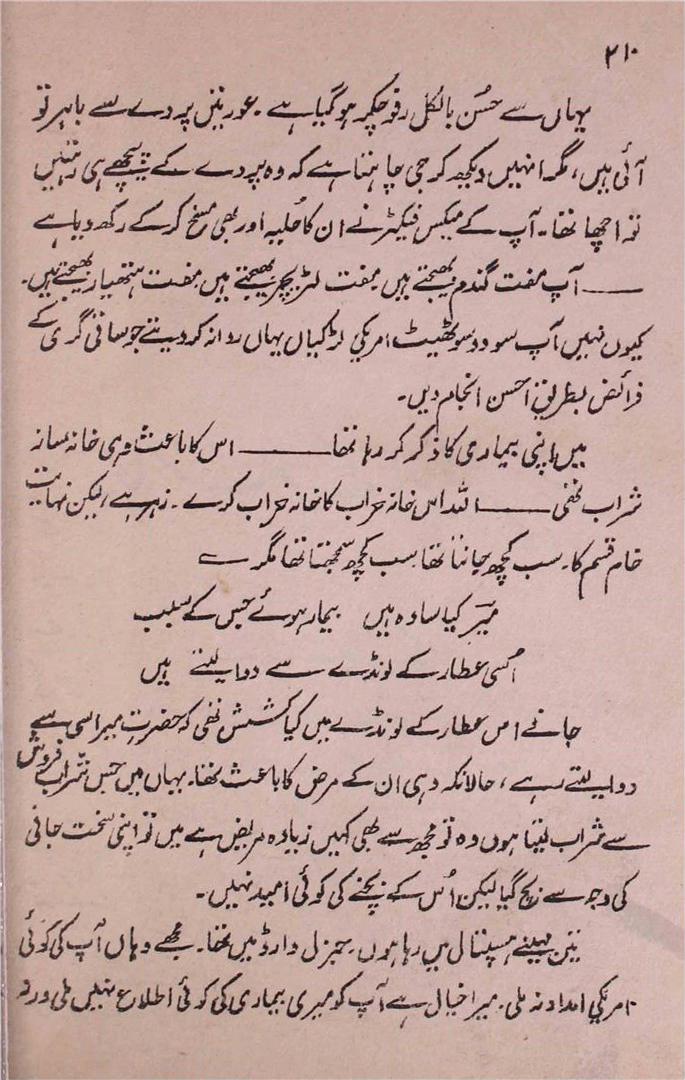 ۲۱۰
یہاں سے حُسن بالکل رفوچکر ہو گیا ہے۔ عورتیں پردے سے باہر تو
آئی ہیں، مگر انہیں دیکھ کر جی چاہتا ہے کہ وہ پردے کے پیچھے ہی رہتیں
تو اچھا تھا۔ آپ کے میکس فیکٹر نے ان کا حُلیہ اور بھی مسخ کر کے رکھ دیا ہے
——— آپ مفت گندم بھیجتے ہیں۔ مفت لٹریچر بھیجتے ہیں مفت ہتھیار بھیجتے ہیں۔
کیوں نہیں آپ سو دو سو ٹھیٹ امریکی لڑکیاں یہاں روانہ کر دیتے جو ساقی گری کے
فرائض بطریق احسن انجام دیں۔
میں اپنی بیماری کا ذکر کر رہا تھا——— اس کا باعث وہی خانہ ساز
شراب تھی——— اللہ اس خانہ خراب کا خانہ خراب کرے۔ زہر ہے، لیکن نہایت
خام قسم کا۔ سب کچھ جانتا تھا سب کچھ سمجھتا تھا مگر ے
میرؔ کیا سادہ ہیں بیمار ہوئے جس کے سبب
اُسی عطار کے لونڈے سے دوا لیتے ہیں
جانے اس عطار کے لونڈے میں کیا کشش تھی کہ حضرت میر اسی سے
دوا لیتے رہے، حالانکہ وہی ان کے مرض کا باعث تھا۔ یہاں میں جس شراب فروش
سے شراب لیتا ہوں وہ تو مجھ سے بھی کہیں زیادہ مریض ہے میں تو اپنی سخت جانی
کی وجہ سے بچ گیا لیکن اُس کے بچنے کی کوئی امید نہیں۔
تین مہینے ہسپتال میں رہا ہوں۔ جنرل وارڈ میں تھا۔ مجھے وہاں آپ کی کوئی
امریکی امداد نہ ملی۔ میرا خیال ہے آپ کو میری بیماری کی کوئی اطلاع نہیں ملی ورنہ